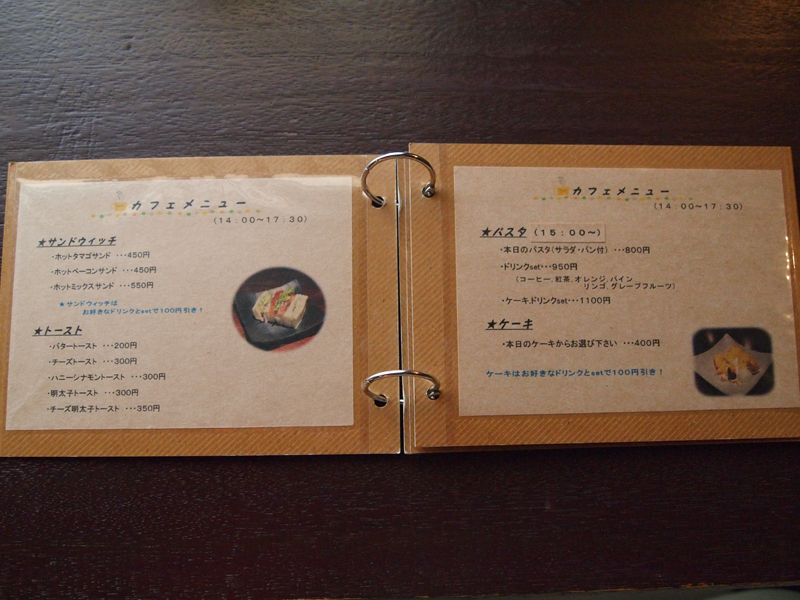 カフェメニュー
（１４：００～１７：３０）
★サンドウィッチ
・ホットタマゴサンド ・・・450円
・ホットベーコンサンド ・・・450円
・ホットミックスサンド ・・・550円
★サンドウィッチは
お好きなドリンクとsetで100円引き！
★トースト
・バタートースト ・・・200円
・チーズトースト ・・・300円
・ハニーシナモントースト ・・・300円
・明太子トースト ・・・300円
・チーズ明太子トースト ・・・350円
カフェメニュー
（１４：００～１７：３０）
★パスタ（１５：００～）
・本日のパスタ（サラダ・パン付） ・・・800円
・ドリンクset・・・950円
（コーヒー、紅茶、オレンジ、パイン
リンゴ、グレープフルーツ）
・ケーキ、ドリンクset・・・1100円
★ケーキ
・本日のケーキからお選び下さい ・・・400円
ケーキはお好きなドリンクとsetで100円引き！